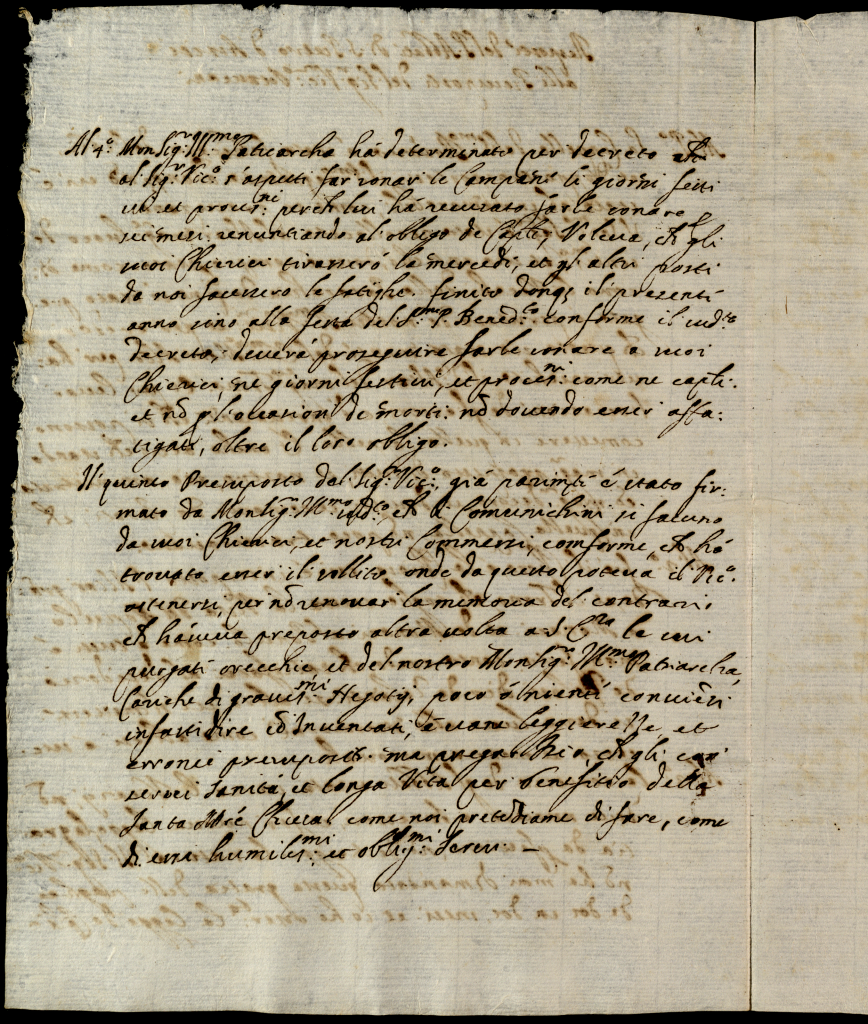 Al 4.º Monsig.r Ill.mo Patriarcha há determinato per decreto ch
al Sig.r Vic.º s'aspetti far sonar le Campane li giorni festi
ui et process.ni perch lui há recusato farle sonare
sei mesi renuntiando al obligo de Voleua, ch gli
suoi Chierici tirasseró la mercede, et gl'altri posti
da noi facessero le fatighe. finito donq; il presente
anno sino alla festa del S.mo P. Bened.to conforme il sud.to
decreto, deuerá proseguire farle sonare a suoi
Chierici, ne giorni festiui, et process.ni come ne
et nõ p l'occasioni de morti. nõ douendo esser affa:
tigati, oltre il loro obligo.
Il quinto Presuposto del Sig.r Vic.º, giá parimte é stato fir:
mato da Monsig.r Ill.mo sud.to, ch li Comunichini si facino
da suoi Chierici, et nostri Commessi, comforme, ch há
trouato esser il sollito, onde da questo poteua il Vic.º
astenersi, per nõ renouar la memoria del contrario
ch háueua preposto altra uolta a S. le cui
purgati orecchie et del nostro Monsig.r Ill.mo Patriarcha,
Cariche di grauis.mi Negotij, poco ó niente conuiẽsi
infastidire cõ Inuentati, é uane leggierezze et
erronei presuposti. ma pregar Dio, ch gli con
serui Sanitá, et longa Vita per benefitio della
Santa Mrẽ Chiesa come noi pretẽdiamo di fare, come
di essi humilis.mi et oblig.mi Serui —